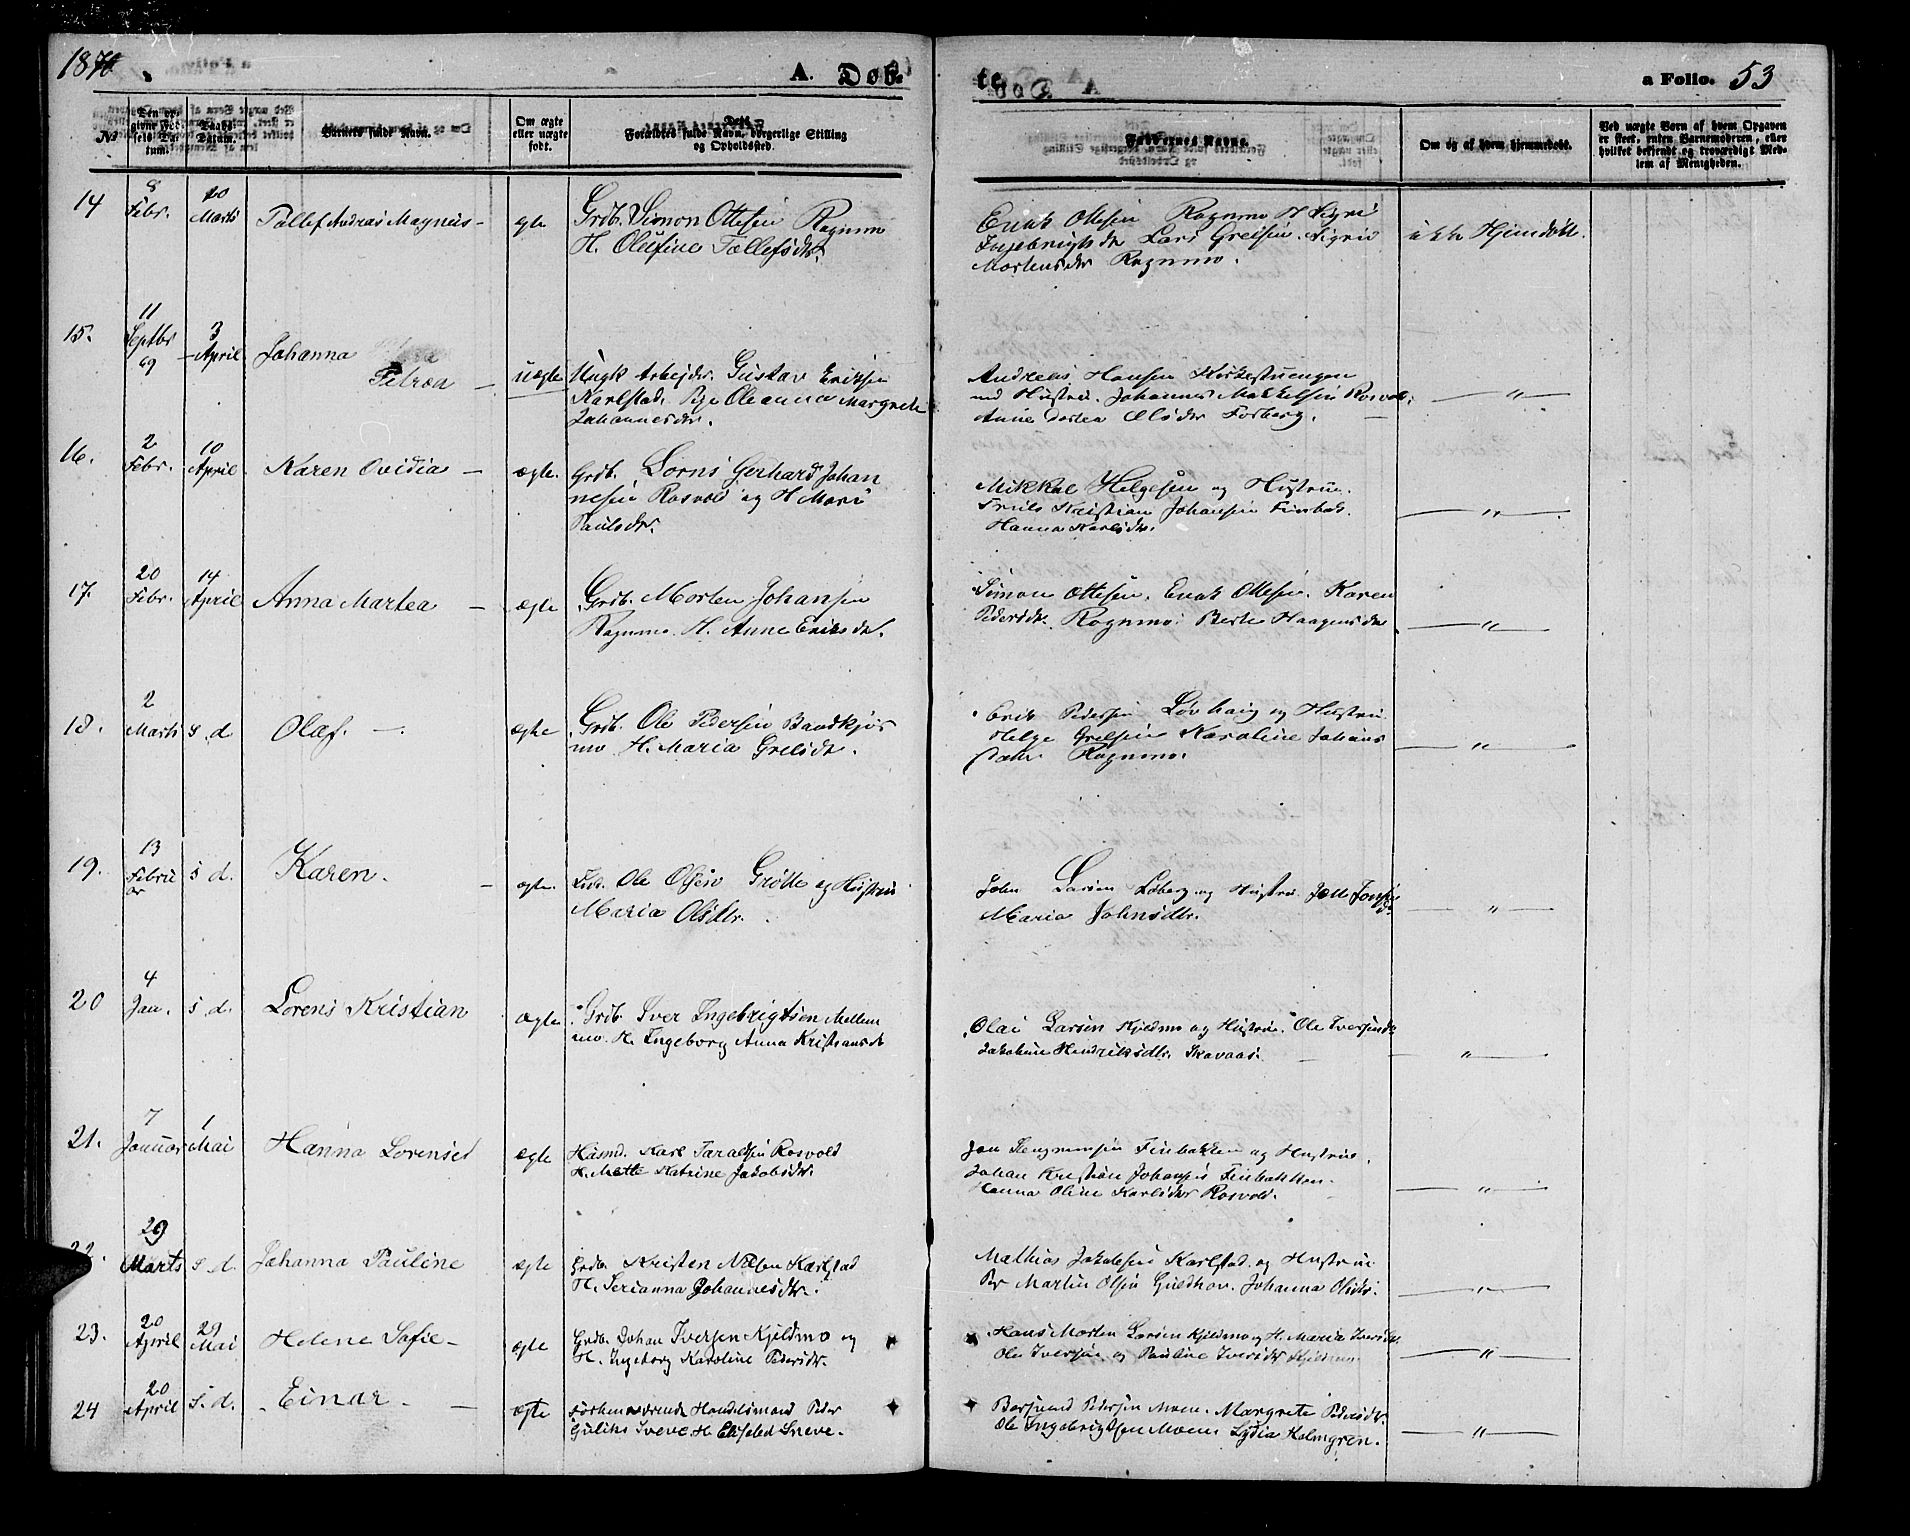 1870.
A. Døb-
te.
a Folio. 53
No
Den op-
givne Fød-
sels Da-
tum.
Daabs-
Datum.
Barnets fulde Navn.
Om ægte
eller uægte
født.
Forældres fulde Navn, borgerlige Stilling
og Opholdssted.
Faddernes Navne.
Om og af hvem hjemmedøbt.
Ved uægte Børn af hvem Opgaven
er skeet, enten Barnemoderen, eller
hvilket bekjendt og troværdigt Med-
lem af Menigheden.
14
8
Febr.
20
Marts
Tollef Andreas Magnus -
egte
Grdb. Simon Ottesen Rognmo
H. Olufine Tollefsdtr.
Erik Ottesen Rognmo H Sigri
Ingebrigtsdtr Lars Grelsen. Sigrid
Mortensdtr Rognmo.
ikke Hjemdøbt.
15.
11
Septbr
69
3
April
Johanna
Petrea -
uægte
Ungk Arbejder. Gustav Eriksen
Karlstad. Pige Oleanna Margrete
Johannesdtr.
Andreas Hansen Kirkestuengen
med Hustru. Johannes Mikkelsen Rosvold.
Anne Dortea Olsdtr Forberg.
— " —
16.
2
Febr.
10
April
Karen Ovidia -
ægte.
Grdb. Lorns Gerhard Johan
nesen Rosvold og H Mari
Paulsdtr.
Mikkal Helgesen og Hustru.
Kristian Johansen Finbak.
Hanna Karlsdtr.
— " —
17.
20
Febr.
14
April
Anna Martea -
ægte
Grdb. Morten Johansen
Rognmo. H. Anne Eriksdtr.
Simon Ottesen. Erik Ottesen. Karen
Pedersdtr. Rognmo. Berte Haagensdtr
— " —
18.
2
Marts
s. d
Olaf. -
ægte
Grdb. Ole Pedersen Bandkjør
mo. H. Maria Grelsdt.
Erik Pedersen Løvhaug og Hustru
Helge Grelsen Karoline Johans
datter Rognmo.
— " —
19.
13
Febru
ar
s d.
Karen. -
ægte.
Ole Olsen Grøtte og Hustru
Maria Olsdtr.
John Larsen Loberg og Hustru
Maria Johnsdtr.
— " —
20
4
Jan.
s. d.
Lorens Kristian
Ægte
Grdb Iver Ingebrigtsen Mellem
mo. H. Ingeborg Anna Kristiansdt
Olai Larsen Kjeldmo og Hustru. Ole Iversen
Jakobine Hendriksdtr. Skavaas.
— " —
21.
7
Januar
1
Mai
Hanna Lorense
ægte
Husmd. Karl Taraldsen Rosvold
H. Mette Katrine Jakobsdtr.
Jon Finbakken og Hustru.
Johan Kristian Johansen Finbakken.
Hanna Oline Karlsdtr Rosvold.
— " —
22.
29
Marts
s d.
Johanna Pauline
ægte
Grdb. Kristen Nilsen Karlstad
H. Serianna Johannesdtr.
Mathias Jakobsen Karlstad og Hustru
Per Martin Olsen Guldhav. Johanna Olsdtr.
— " —
23.
20
April
29
Mai
Helene Sofie -
ægte
Grdb. Johan Iversen Kjeldmo og
H. Ingeborg Karoline Pedersdtr.
Hans Morten Larsen Kjeldmo og H. Maria Iversdtr
Ole Iversen og Pauline Iversdtr Kjeldmo
— " —
24
20
April
s. d.
Einar - —
ægte
Forhenværende Handelsmand Peder
Gulik Sneve H. Elisebed Sneve.
Bersvend Pedersen Moen. Margrete Pedersdtr.
Ole Ingebrigtsen Moen Lydia Holmgren.
— " —